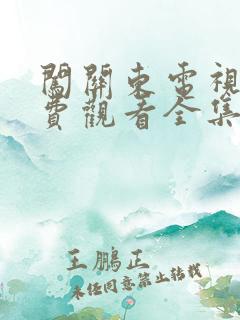 闖關東電視
費觀看全集
王鵬正
未经同意禁止转载